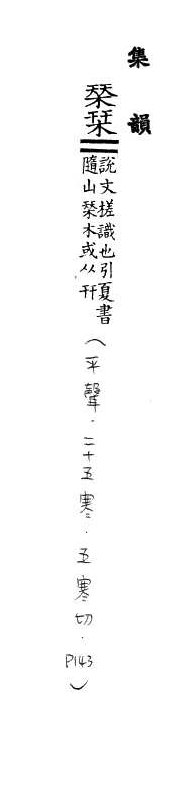 集韻
𣓁栞
說文槎識也引夏書
隨山𣓁木或从幵
（平聲．二十五寒．五寒切．P143）